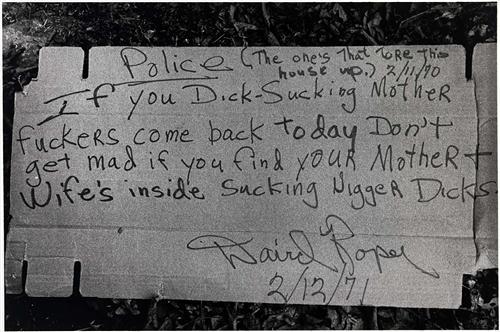 Police (The one's That Tore This
house up.) 2/11/70
If you Dick-Sucking Mother
fuckers come back today Don't
get mad if you find your Mother +
Wife's inside Sucking Nigger Dicks
David Roper
2/12/71